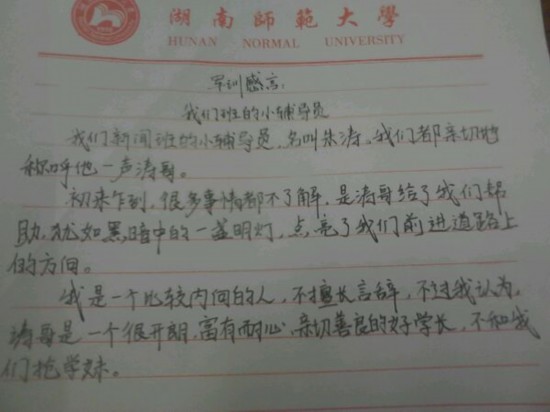 湖南师范大學
HUNAN NORMAL UNIVERSITY
军训感言:
我们班的小辅导员
我们新闻班的小辅导员,名叫朱涛,我们都亲切地
称呼他一声涛哥。
初来乍到,很多事情都不了解,是涛哥给了我们帮
助,犹如黑暗中的一盏明灯,点亮了我们前进道路上
的方向。
我是一个比较内向的人,不擅长言辞,不过我认为,
涛哥是一个很开朗,富有耐心,亲切善良的好学长,不和我
们抢学妹。